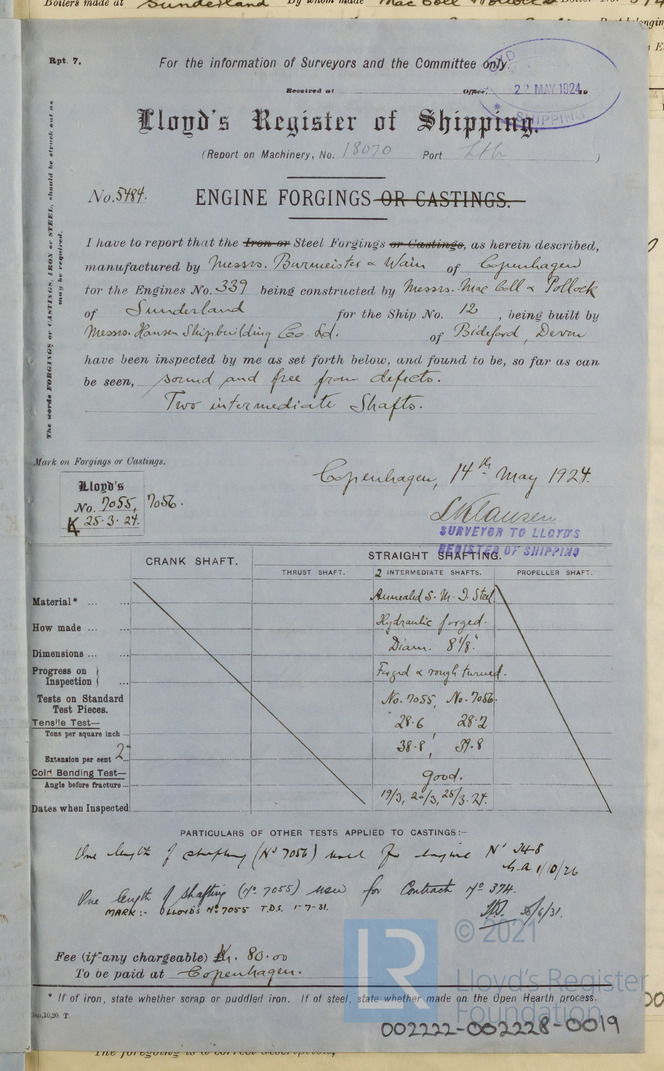 Boilers made at Sunderland By whom made MacColl & Pollock Boiler No. 374
Rpt. 7.
For the information of Surveyors and the Committee only.
Received at Office,
22 MAY 1924
SHIPPING
Lloyd's Register of Shipping.
(Report on Machinery, No. 18070 Port Lth )
No. 5484. ENGINE FORGINGS OR CASTINGS.
The words FORGINGS or CASTINGS, IRON or STEEL, should be struck out as
may be required.
I have to report that the Iron or Steel Forgings or Castings, as herein described,
manufactured by Messrs. Burmeister & Wain of Copenhagen
for the Engines No. 339 being constructed by Messrs. Mac Coll & Pollock
of Sunderland for the Ship No. 12, being built by
Messrs. Hansen Shipbuilding Co Ld. of Bideford, Devon
have been inspected by me as set forth below, and found to be, so far as can
be seen, sound and free from defects.
Two intermediate Shafts.
Mark on Forgings or Castings.
Lloyd's
No. 7055, 7056.
K 25.3.24.
Copenhagen, 14th May 1924.
Klausen
SURVEYOR TO LLOYD'S
REGISTER OF SHIPPING
CRANK SHAFT. STRAIGHT SHAFTING.
THRUST SHAFT. 2 INTERMEDIATE SHAFTS. PROPELLER SHAFT.
Material* ... ... Annealed S. M. I. Steel
How made ... ... Hydraulic forged.
Dimensions ... ... Diam. 8 1/8"
Progress on Inspection ... Forged & rough turned.
Tests on Standard Test Pieces. No. 7055, No. 7056.
Tensile Test—
Tons per square inch ... 28.6 28.2
Extension per cent 2" ... 38.8, 39.8
Cold Bending Test—
Angle before fracture ... good.
Dates when Inspected 19/3, 25/3.24.
PARTICULARS OF OTHER TESTS APPLIED TO CASTINGS:—
One length of shafting (No 7056) used for engine No 348
1/10/26
One length of shafting (No. 7055) used for Contract No 374.
MARK:- LLOYDS No 7055 T.D.S. 1-7-31.
30/6/31.
Fee (if any chargeable) Kr. 80.00
To be paid at Copenhagen.
* If of iron, state whether scrap or puddled iron. If of steel, state whether made on the Open Hearth process.
LR
© 2021
Lloyd's Register
Foundation
002222-002228-0019
The foregoing is a correct description,